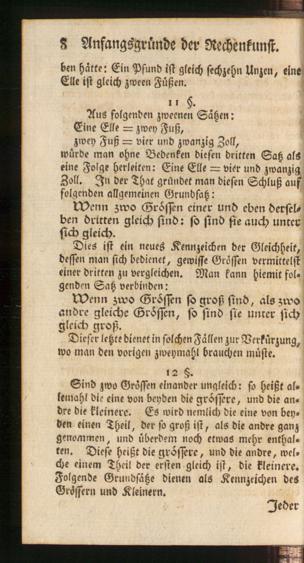 8 Anfangsgründe der Rechenkunst.
ben hätte: Ein Pfund ist gleich sechzehn Unzen, eine
Elle ist gleich zween Füßen.
11 §.
Aus folgenden zweenen Sätzen:
Eine Elle = zwey Fuß,
zwey Fuß = vier und zwanzig Zoll,
würde man ohne Bedenken diesen dritten Satz als
eine Folge herleiten: Eine Elle = vier und zwanzig
Zoll. In der That gründet man diesen Schluß auf
folgenden allgemeinen Grundsatz:
Wenn zwo Grössen einer und eben dersel-
ben dritten gleich sind: so sind sie auch unter
sich gleich.
Dies ist ein neues Kennzeichen der Gleichheit,
dessen man sich bedienet, gewisse Grössen vermittelst
einer dritten zu vergleichen. Man kann hiemit fol-
genden Satz verbinden:
Wenn zwo Grössen so groß sind, als zwo
andre gleiche Grössen, so sind sie unter sich
gleich groß.
Dieser letzte dienet in solchen Fällen zur Verkürzung,
wo man den vorigen zweymahl brauchen müste.
12 §.
Sind zwo Grössen einander ungleich: so heißt al-
lemahl die eine von beyden die grössere, und die an-
dre die kleinere. Es wird nemlich die eine von bey-
den einen Theil, der so groß ist, als die andre ganz
genommen, und überdem noch etwas mehr enthal-
ten. Diese heißt die grössere, und die andre, wel-
che einem Theil der ersten gleich ist, die kleinere.
Folgende Grundsätze dienen als Kennzeichen des
Grössern und Kleinern.
Jeder